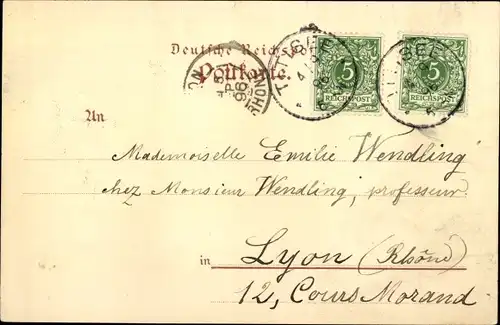 Deutsche Reichspost
Postkarte.
TITISEE
5
REICHSPOST
5
REICHSPOST
An
Mademoiselle Emilie Wendling
chez Monsieur Wendling, professeur
in Lyon (Rhône)
12, Cours Morand